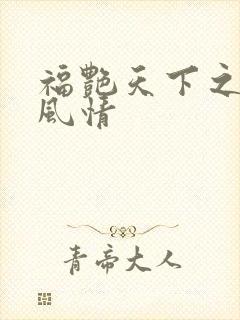 福艷天下之
風情
青帝大人